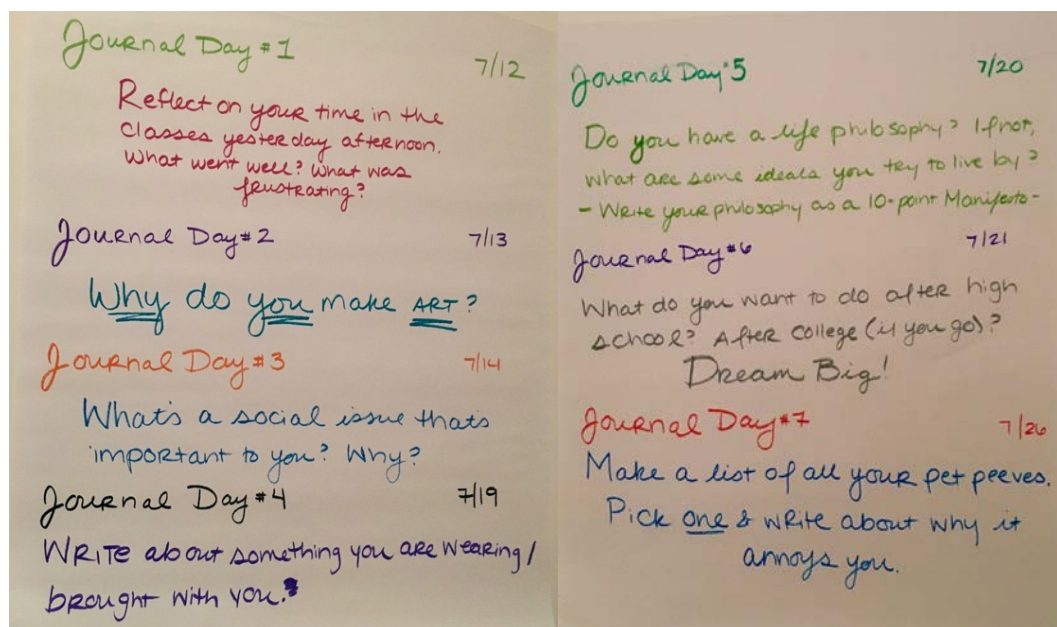 Journal Day #1
7/12
Reflect on your time in the
classes yesterday afternoon.
What went well? What was
frustrating?
Journal Day #2
7/13
Why do you make ART?
Journal Day #3
7/14
What's a social issue thats
important to you? Why?
Journal Day #4
7/19
Write about something you are wearing/
brought with you.
Journal Day #5
7/20
Do you have a life philosophy? If not,
what are some ideals you try to live by?
- Write your philosophy as a 10-point Manifesto-
Journal Day #6
7/21
What do you want to do after high
school? After college (if you go)?
Dream Big!
Journal Day #7
7/26
Make a list of all your pet peeves.
Pick one & write about why it
annoys you.